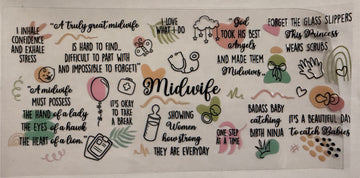 I INHALE
CONFIDENCE
AND EXHALE
STRESS
"A Truly great midwife
IS HARD TO FIND...
DIFFICULT TO PART WITH
AND IMPOSSIBLE TO FORGET!"
I LOVE
WHAT I DO
"God
TOOK HIS BEST
Angels
AND MADE THEM
Midwives..."
FORGET THE GLASS SLIPPERS
This Princess
WEARS SCRUBS
"A midwife
MUST POSSESS
THE HAND of a lady
THE EYES of a hawk
THE HEART of a lion."
IT'S OKAY
TO TAKE
A BREAK
Midwife
SHOWING
Women
how strong
THEY ARE EVERYDAY
ONE STEP
AT A TIME
BADASS BABY
catching
BIRTH NINJA
IT'S A BEAUTIFUL DAY
to catch Babies